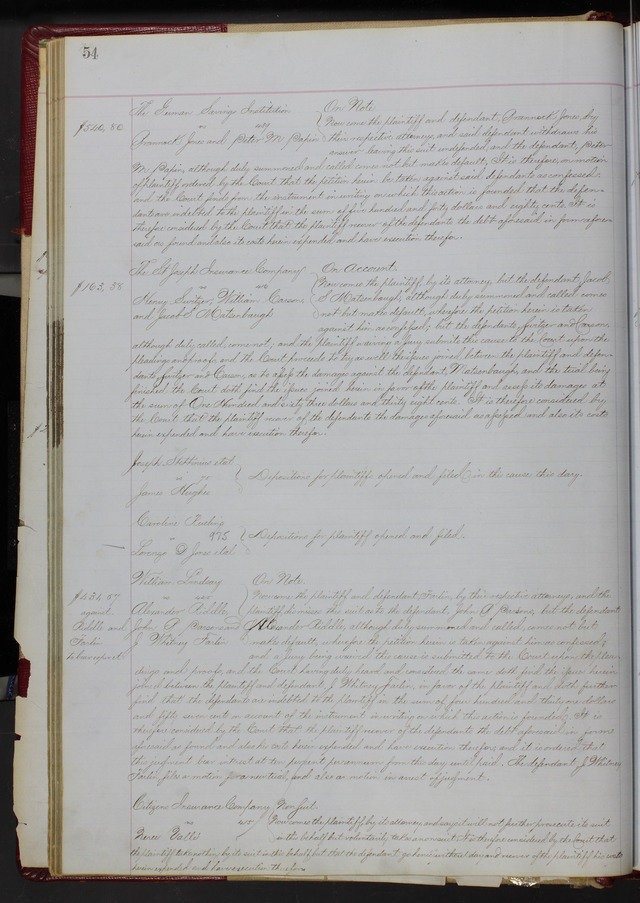 54
The German Savings Institution } On Note
$540,80 vs Now come the plaintiff and defendant, Brannack Jones, by
Brannack Jones and Peter M Papin } their respective attorneys and said defendant withdraws his
answer leaving this suit undefended, and the defendant, Peter
M Papin, although duly summoned and called comes not but makes default; It is therefore on motion
of plaintiff ordered by the Court that the petition herein be taken against said defendants as confessed:
and the Court finds from the instrument in writing on which this action is founded that the defen-
dants are indebted to the plaintiff in the sum of five hundred and forty dollars and eighty cents. It is
therefore considered by the Court that the plaintiff recover of the defendants the debt aforesaid in form afore-
said so found and also its costs herein expended and have execution therefor.
The St Joseph Insurance Company } On Account.
$163,38 vs Now comes the plaintiff by its attorney, but the defendant Jacob
Henry Switzer, William Carson } S Matsenbaugh, although duly summoned and called comes
and Jacob S Matsenbaugh not but makes default, wherefore the petition herein is taken
against him as confessed; but the defendants, Switzer and Carson,
although duly called, come not, and the plaintiff waiving a jury submits this cause to the Court upon the
pleadings and proofs, and the Court proceeds to try as well the issues joined between the plaintiff and defen-
dants, Switzer and Carson, as to assess the damages against the defendant, Matsenbaugh, and the trial being
finished the Court doth find the issues joined herein in favor of the plaintiff and assess its damages at
the sum of One Hundred and sixty three dollars and thirty eight cents. It is therefore considered by
the Court that the plaintiff recover of the defendants the damages aforesaid as assessed and also its costs
herein expended and have execution therefor.
Joseph et al
vs } Depositions for plaintiffs opened and filed in the cause this day.
James Hughes
Caroline
975 } Depositions for plaintiff opened and filed.
Lorenzo D Jones et al
William Lindsay } On Note.
$431,57 vs Now come the plaintiff and defendant, Farlin, by their respective attorneys, and the
against Alexander plaintiff dismisses this suit as to the defendant John A but the defendant
and John A and Alexander although duly summoned and called, comes not but
Farlin J Whitney Farlin makes default, wherefore the petition herein is taken against him as confessed;
to bear 10 per cent and a jury being waived this cause is submitted to the Court upon the plea-
dings and proofs, and the Court having duly heard and considered the same doth find the issue herein
joined between the plaintiff and defendant J Whitney Farlin, in favor of the plaintiff and doth further
find that the defendants are indebted to the plaintiff in the sum of four hundred and thirty one dollars
and fifty seven cents on account of the instrument in writing on which this action is founded. It is
therefore considered by the Court that the plaintiff recover of the defendants the debt aforesaid in form
aforesaid so found and also his costs herein expended and have execution therefor and it is ordered that
the judgment bear interest at ten per cent per annum from this day until paid. The defendant J Whitney
Farlin files a motion for a new trial, and also a motion in arrest of judgment.
Citizens Insurance Company } Non Suit.
vs Now comes the plaintiff by its attorney and says it will not further prosecute its suit
Vallé in this behalf but voluntarily takes a nonsuit. It is therefore considered by the Court, that
the plaintiff take nothing by its suit in this behalf, but that the defendant go hence without day and recover of the plaintiff his costs
herein expended and have execution therefor.